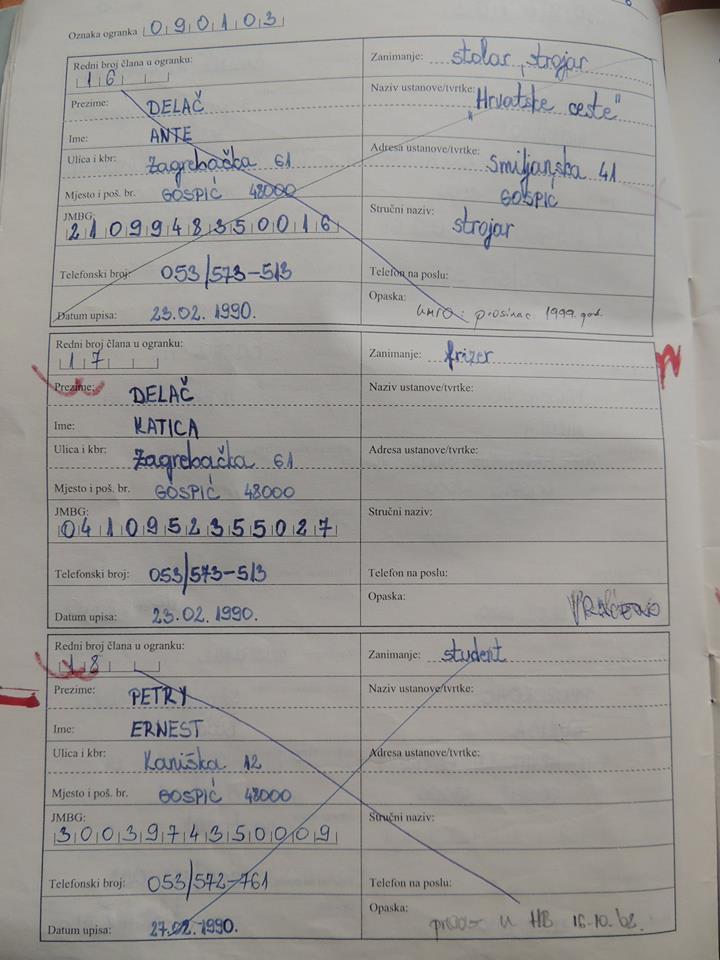 Oznaka ogranka 090103
Redni broj člana u ogranku: Zanimanje: stolar, strojar
16
Prezime: DELAČ Naziv ustanove/tvrtke: "Hrvatske ceste"
Ime: ANTE
Ulica i kbr: Zagrebačka 61 Adresa ustanove/tvrtke: Smiljanska 41
Mjesto i poš. br. GOSPIĆ 48000 GOSPIĆ
JMBG: Stručni naziv: strojar
2109948350016
Telefonski broj: 053/573-513 Telefon na poslu:
Datum upisa: 23.02.1990. Opaska: umro: prosinac 1999. god.
Redni broj člana u ogranku: Zanimanje: frizer
17
Prezime: DELAČ Naziv ustanove/tvrtke:
Ime: KATICA
Ulica i kbr: Zagrebačka 61 Adresa ustanove/tvrtke:
Mjesto i poš. br. GOSPIĆ 48000
JMBG: Stručni naziv:
0410952355027
Telefonski broj: 053/573-513 Telefon na poslu:
Datum upisa: 23.02.1990. Opaska: VRAĆENO
Redni broj člana u ogranku: Zanimanje: student
18
Prezime: PETRY Naziv ustanove/tvrtke:
Ime: ERNEST
Ulica i kbr: Kaniška 12 Adresa ustanove/tvrtke:
Mjesto i poš. br. GOSPIĆ 48000
JMBG: Stručni naziv:
3003974350009
Telefonski broj: 053/572-761 Telefon na poslu:
Datum upisa: 27.02.1990. Opaska: u HB 16.10.